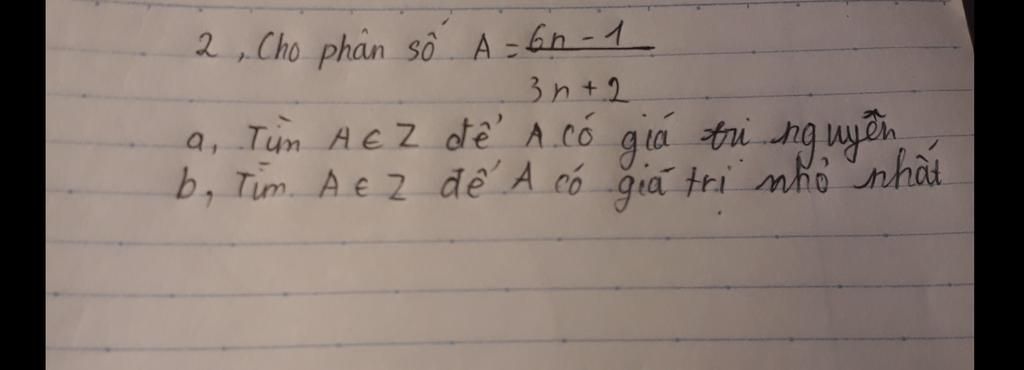 2, Cho phân số A = 6n - 1
3n + 2
a, Tìm A ∈ Z để A có giá trị nguyên
b, Tìm A ∈ Z để A có giá trị nhỏ nhất